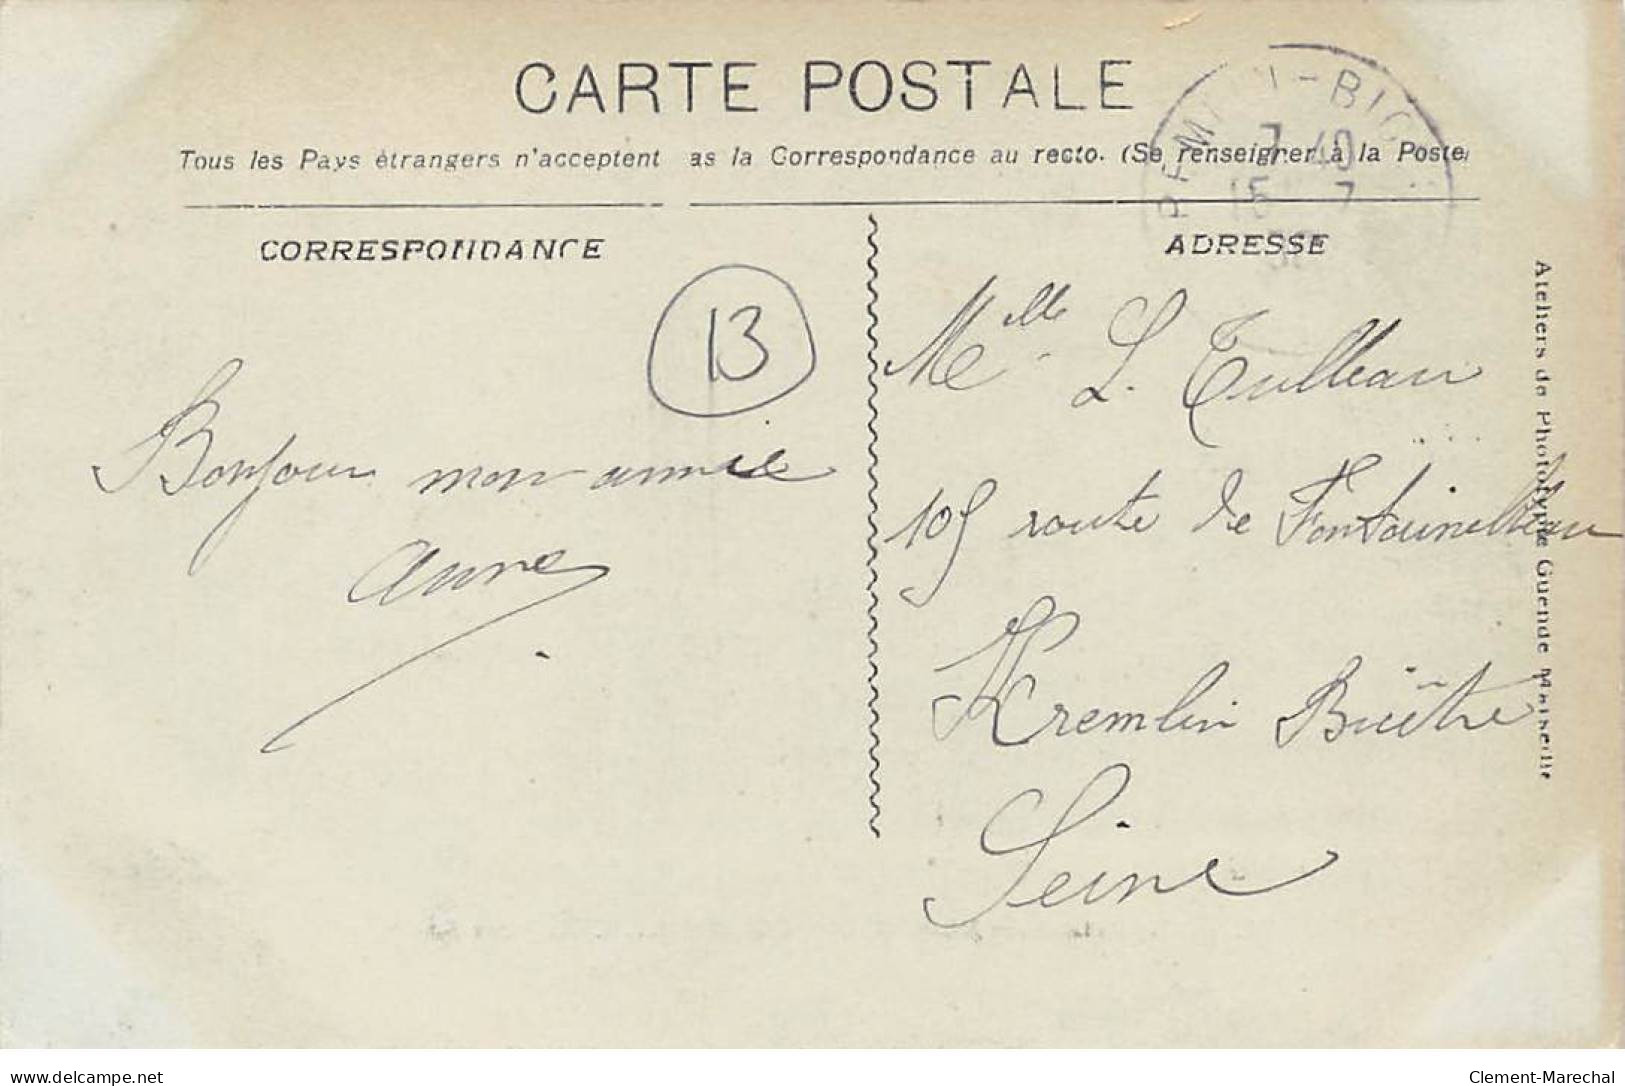 CARTE POSTALE
Tous les Pays étrangers n'acceptent as la Correspondance au recto. (Se renseigner à la Poste)
CORRESPONDANCE
ADRESSE
13
Bonjour mon amie
Anna
Melle L. Tulleau
105 route de Fontainebleau
Kremlin Bicêtre
Seine
Ateliers de Phototypie Guende Marseille
7 40
15 7
delcampe.net
Clement-Marechal